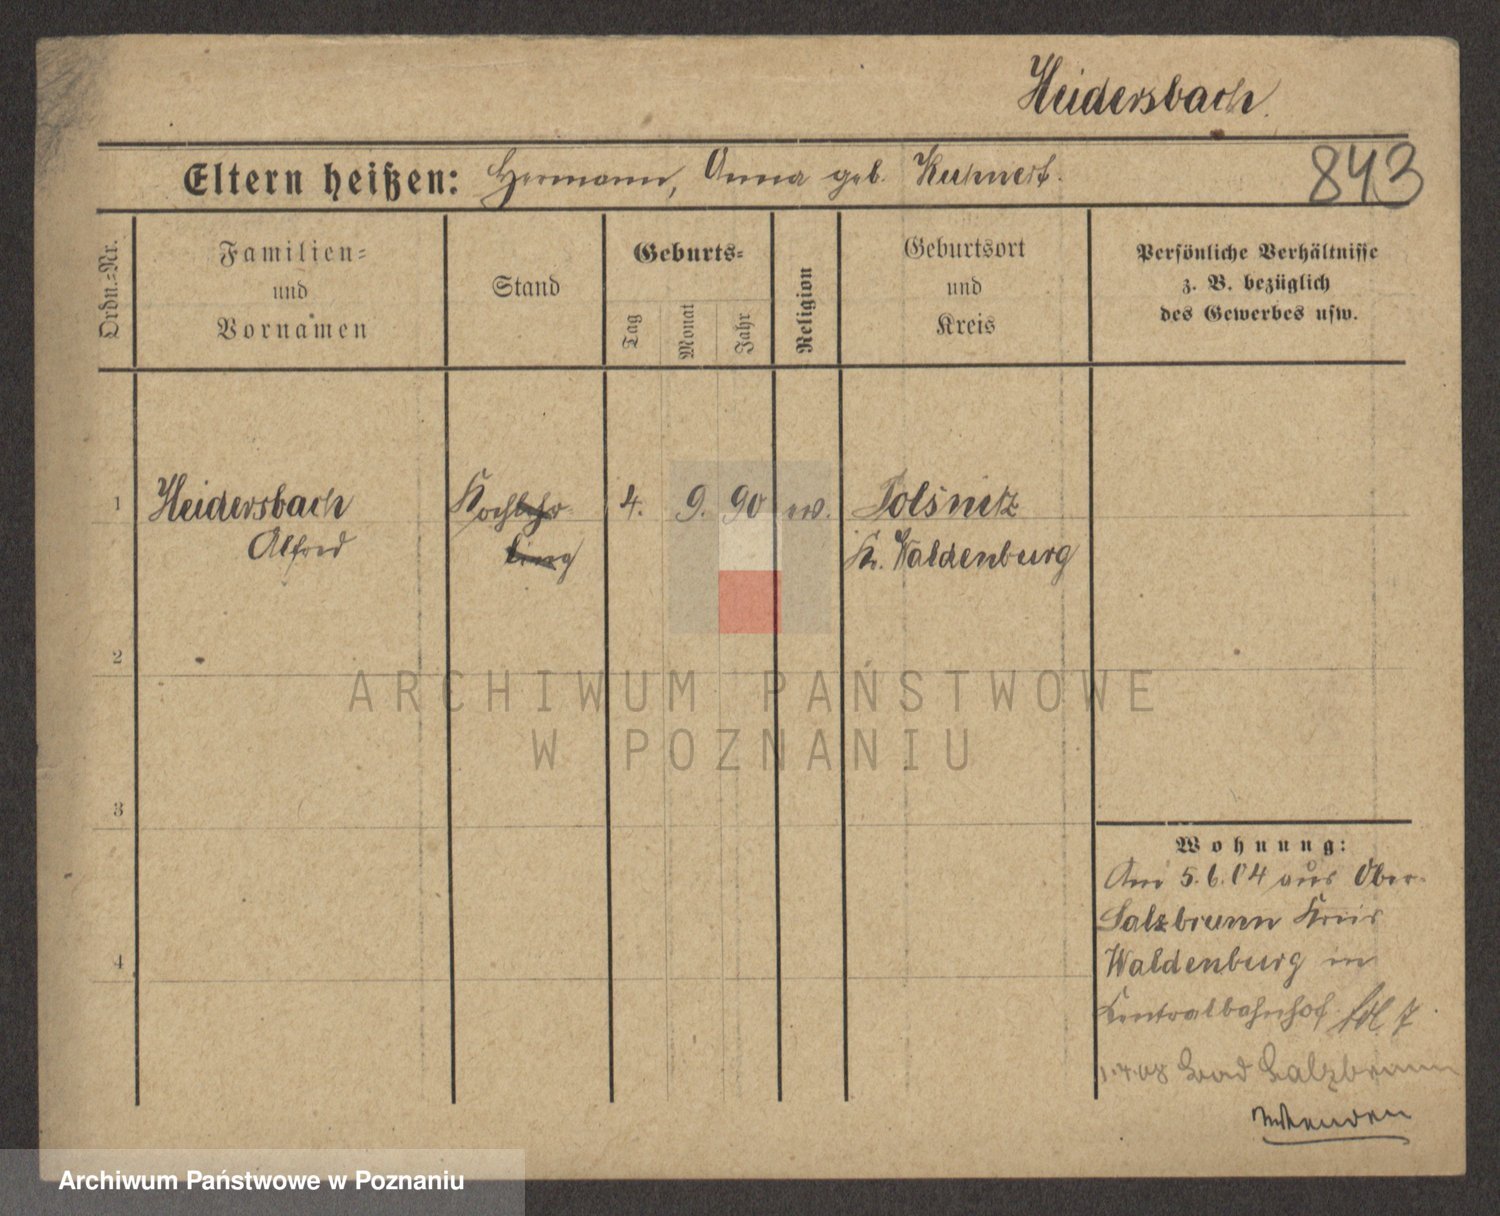 Heidersbach.
Eltern heißen: Hermann, Anna geb. Kuhnert.
843
Ordn.=Nr.
Familien=
und
Vornamen
Stand
Geburts=
Tag
Monat
Jahr
Religion
Geburtsort
und
Kreis
Persönliche Verhältnisse
z. B. bezüglich
des Gewerbes usw.
1 Heidersbach Kochlehr 4. 9. 90 ev. Polsnitz
Alfred ling Kr. Waldenburg
2
3
4
ARCHIWUM PAŃSTWOWE
W POZNANIU
Wohnung:
Am 5.6.04 aus Ober-
Salzbrunn Kreis
Waldenburg in
Centralbahnhof
1.4.08 Bad Salzbrunn
wenden
Archiwum Państwowe w Poznaniu